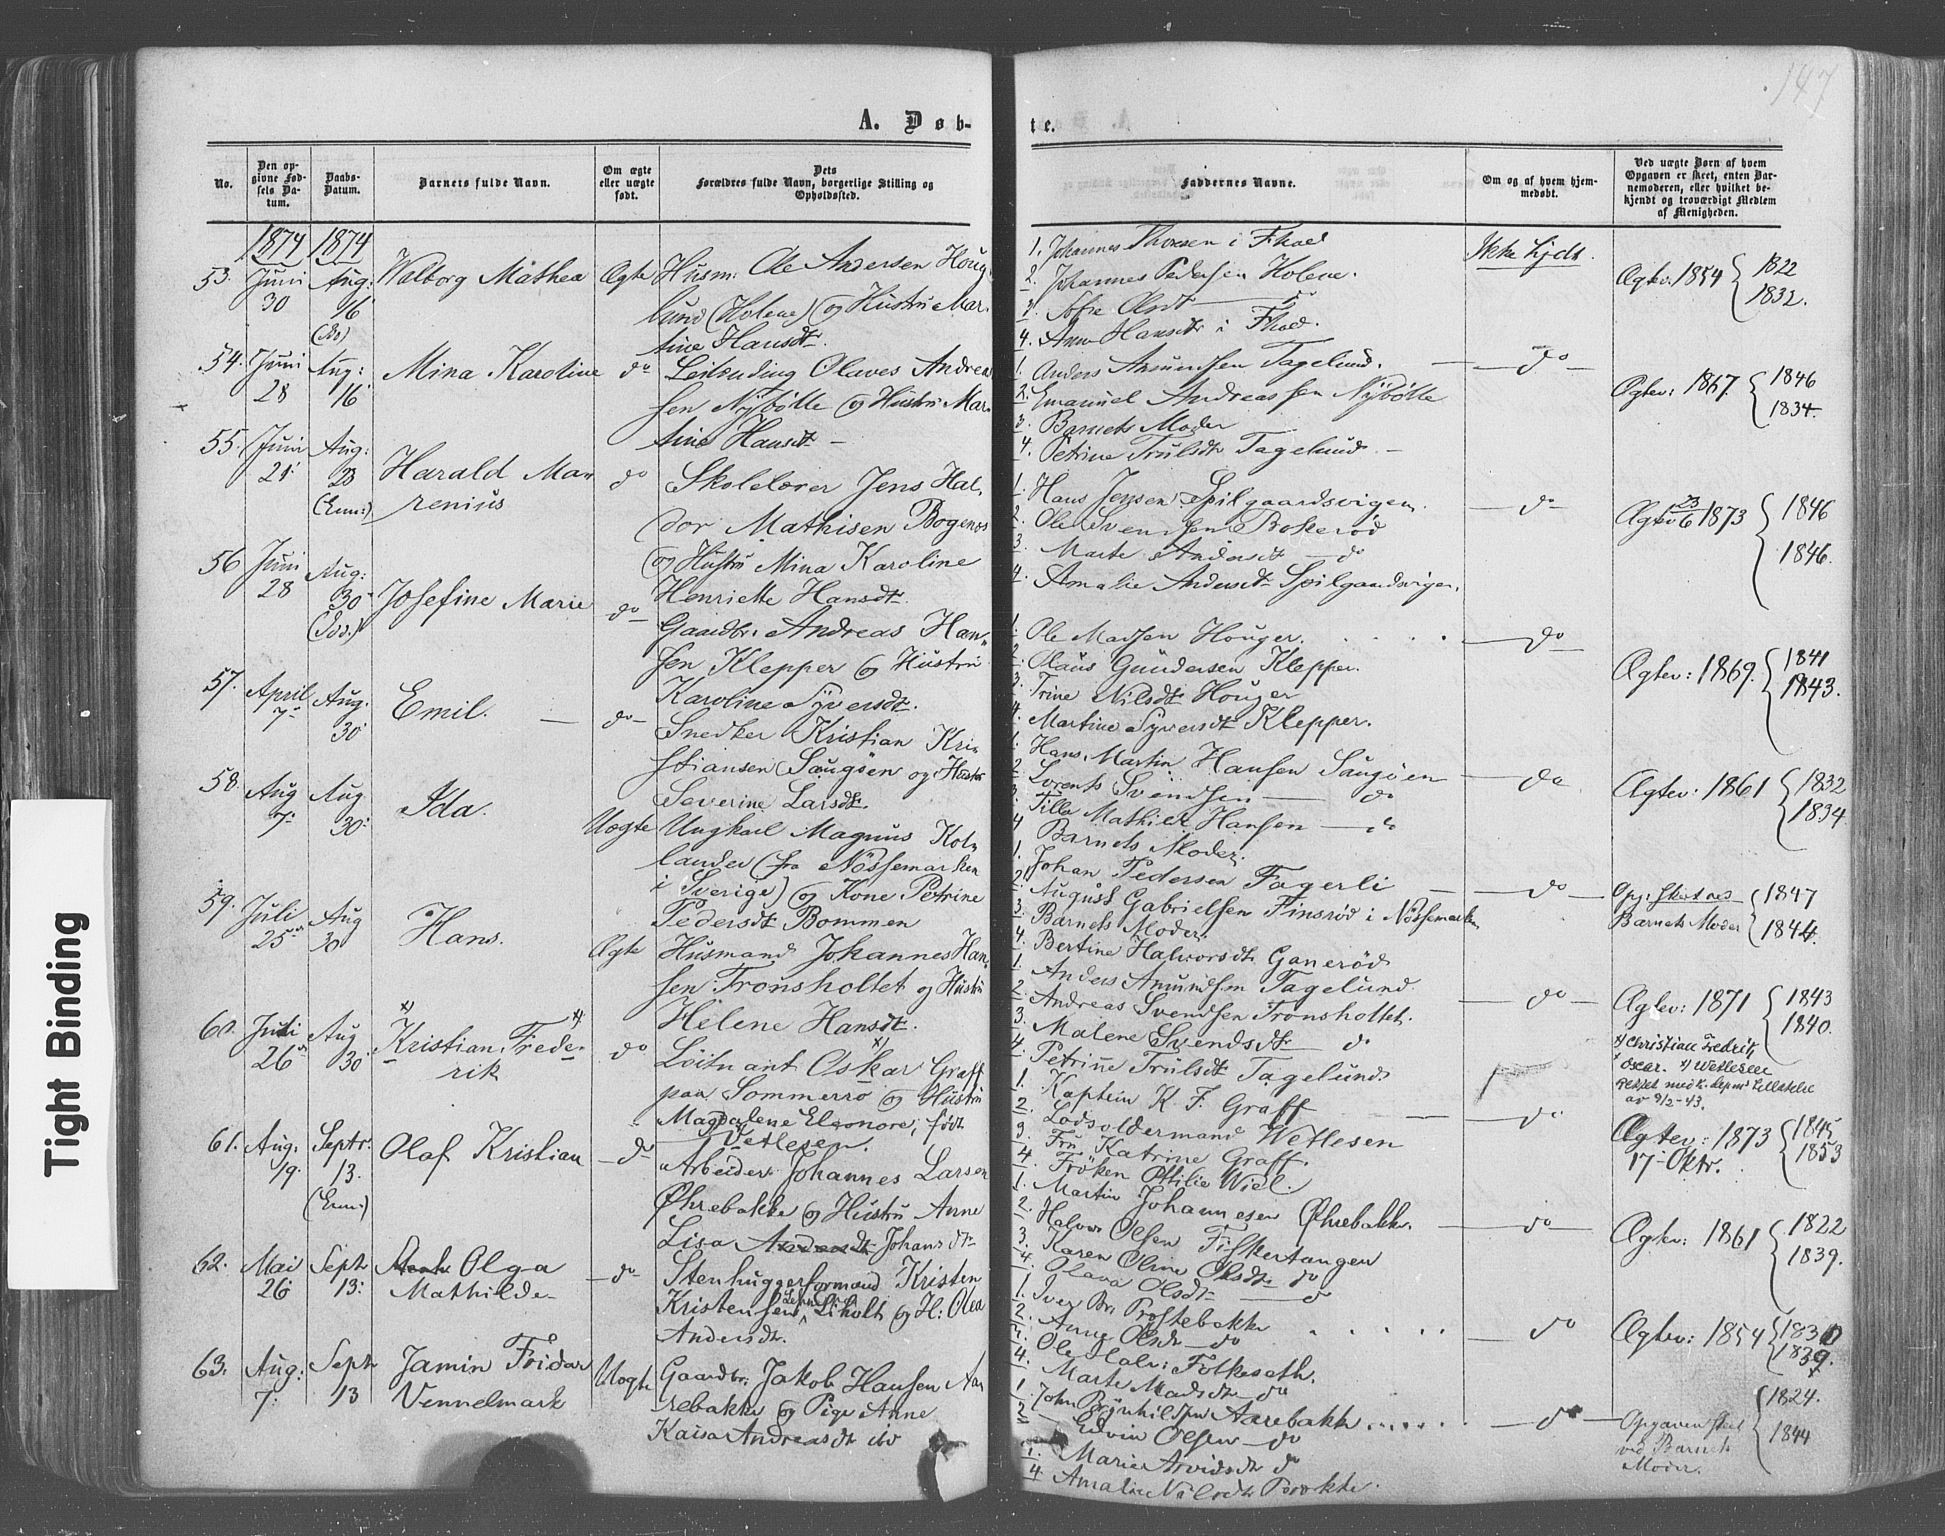 147
A. Døb-
te.
No.
Den op-
givne Fød-
sels Da-
tum.
Daabs-
Datum.
Barnets fulde Navn.
Om ægte
eller uægte
født.
Dets
Forældres fulde Navn, borgerlige Stilling og
Opholdssted.
Faddernes Navne.
Om og af hvem hjem-
medøbt.
Ved uægte Børn af hvem
Opgaven er skeet, enten Bar-
nemoderen, eller hvilket be-
kjendt og troværdigt Medlem
af Menigheden.
1874 1874
53. Juni 30 Aug: 16 Walborg Mathea Ægte Husm: Ole Andersen Houg-
lund (Holene) og Hustru Mar-
tine Hansdt.
1. Johannes Thoresen i
2. Johannes Pedersen Holene.
3. Sofie Olsdt
4. Anne Hansdt i
Ikke hjdt.
Ægtev: 1854 { 1822
1832.
54. Juni 28 Aug: 16 Mina Karoline do Leilending Olaves Andrea
sen Nybøtte og Hustru Mar-
tine Hansdt –
1. Anders Amundsen Tagelund.
2. Emanuel Andreassen Nybøtte
3. Barnets Moder
4. Petrine Trulsdt Tagelund –
– do –
Ægtev: 1867. { 1846
1834.
55. Juni 21 Aug: 23 (Enn:) Harald Ma-
renius do Skolelærer Jens Hal-
dor Mathisen Bogenes
og Hustru Mina Karoline
Henriette Hansdt.
1. Hans Jensen Spilgaardsvigen
2. Ole Svendsen Bokerød
3. Marte Andersdt – do
4. Amalie Andersdt Spilgaardsvigen.
– do –
Ægtev 23/6 1873 { 1846
1846.
56 Juni 28 Aug: 30 Josefine Marie do – Gaardbr: Andreas Han-
sen Klepper og Hustru
Karoline Syversdt.
1. Ole Madsen Houger.
2. Olaus Gundersen Klepper.
3. Trine Nilsdt Houger
4. Martine Syversdt Klepper.
– do –
Ægtev: 1869. { 1841
1843.
57. April 7 Aug. 30 Emil. – do – Snedker Kristian Kri-
stiansen Saugøen og Hustru
Severine Larsdt.
1. Hans Martin Hansen Saugøen
2. Lorents Svendsen – do
3. Tilla Mathier Hansen – do
4 Barnets Moder.
– do
Ægtev: 1861 { 1832
1834
58. Aug 7 Aug 30 Ida. Uægte Ungkarl Magnus Kol-
lander (fra Nössemarken
i Sverige) og Kone Petrine
Pedersdt Bommen
1. Johan Pedersen Fagerli
2. August Gabrielsen Finsrød i Nössemarken
3. Barnets Moder.
4. Bertine Halvorsdt Ganerød
– do –
Opg: skert ved
Barnets Moder { 1847
1844.
59. Juli 25 Aug 30 Hans. Ægte Husmand Johannes Han-
sen Tronsholtet og Hustru
Helene Hansdt.
1. Anders Amundsen Tagelund.
2. Andreas Svendsen Tronsholtet.
3. Malene Svendsdt – do
4. Petrine Trulsdt Tagelund.
– do –
Ægtev: 1871 { 1843
1840.
60. Juli 26 Aug 30 x) Kristian Frede- x)
rik do Löitnant Oskar x) Graff
paa Sommerro og Hustru
Magdalene Eleonore, född
Vetlesen.
1. Kaptein K. F. Graff
2. Lodsoldermand Wetlesen
3. Fru Katrine Graff.
4. Frøken Ottilie Wiel.
– do
x) Christian Fredrik,
x Oscar. x) Wetlesen
rettet med k. depmt tillatelse
av 9/2-43.
Ægtev: 1873
17 Oktr. { 1845
1853
61. Aug. 19 Septr. 13. (Enn:) Olaf Kristian – do – Arbeider Johannes Larsen
Øhrebakke og Hustru Anne
Lisa Andersdt Johansdt
1. Martin Johannesen Øhrebakke
2. Halvor Olsen Fiskertangen
3. Karen Oline Olsdt do
4. Olava Olsdt – do
– do –
Ægtev: 1861 { 1822
1839.
62. Mai 26 Sept 13: Olga
Mathilde – do – Stenhuggerformand Kristen
Kristensen Liholt og H: Olea
Andersdt.
1. Iver Br: Prestebakke
2. Anne Olsdt – do
3. Ole Halv: Folkeseth.
4. Marte Madsdt do
– do
Ægtev: 1854 { 1830
1839.
63. Aug: 7. Sept 13 Jamin Fridar
Vennelmark Uægte Gaardbr: Jakob Hansen Aa-
rebakke og Pige Anne
Kaisa Andreasdt ibd
1. John Brynhildsen Aarebakke
2. Edvin Olsen – do
3. Marie Arvidsdt do
4. Amalie Nilsdt
– do –
Opgaven skeet
ved Barnets
Moder. { 1824.
1844
Tight Binding